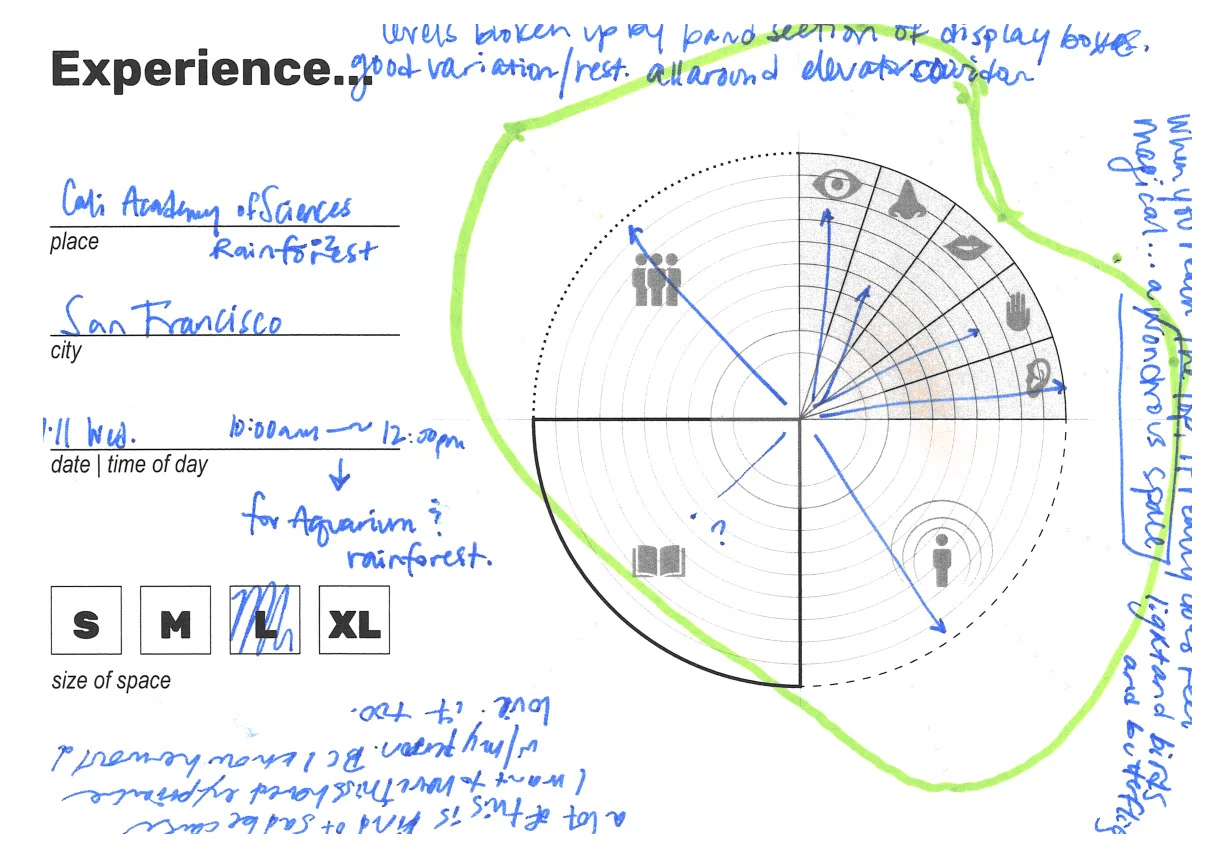 levels broken up by band section of display boxes.
Experience...
good variation/rest. all around elevator corridor
Cali Academy of Sciences
place
Rainforest
San Francisco
city
1.11 Wed. 10:00am ~ 12:00pm
date | time of day
for Aquarium &
rainforest.
?
S M L XL
size of space
When you reach the top, it really does feel
magical... a wondrous space light and birds
and butterflies
a lot of this is kind of sad because
I want to have this shared experience
w/my person. Bc I know he would
love it too.